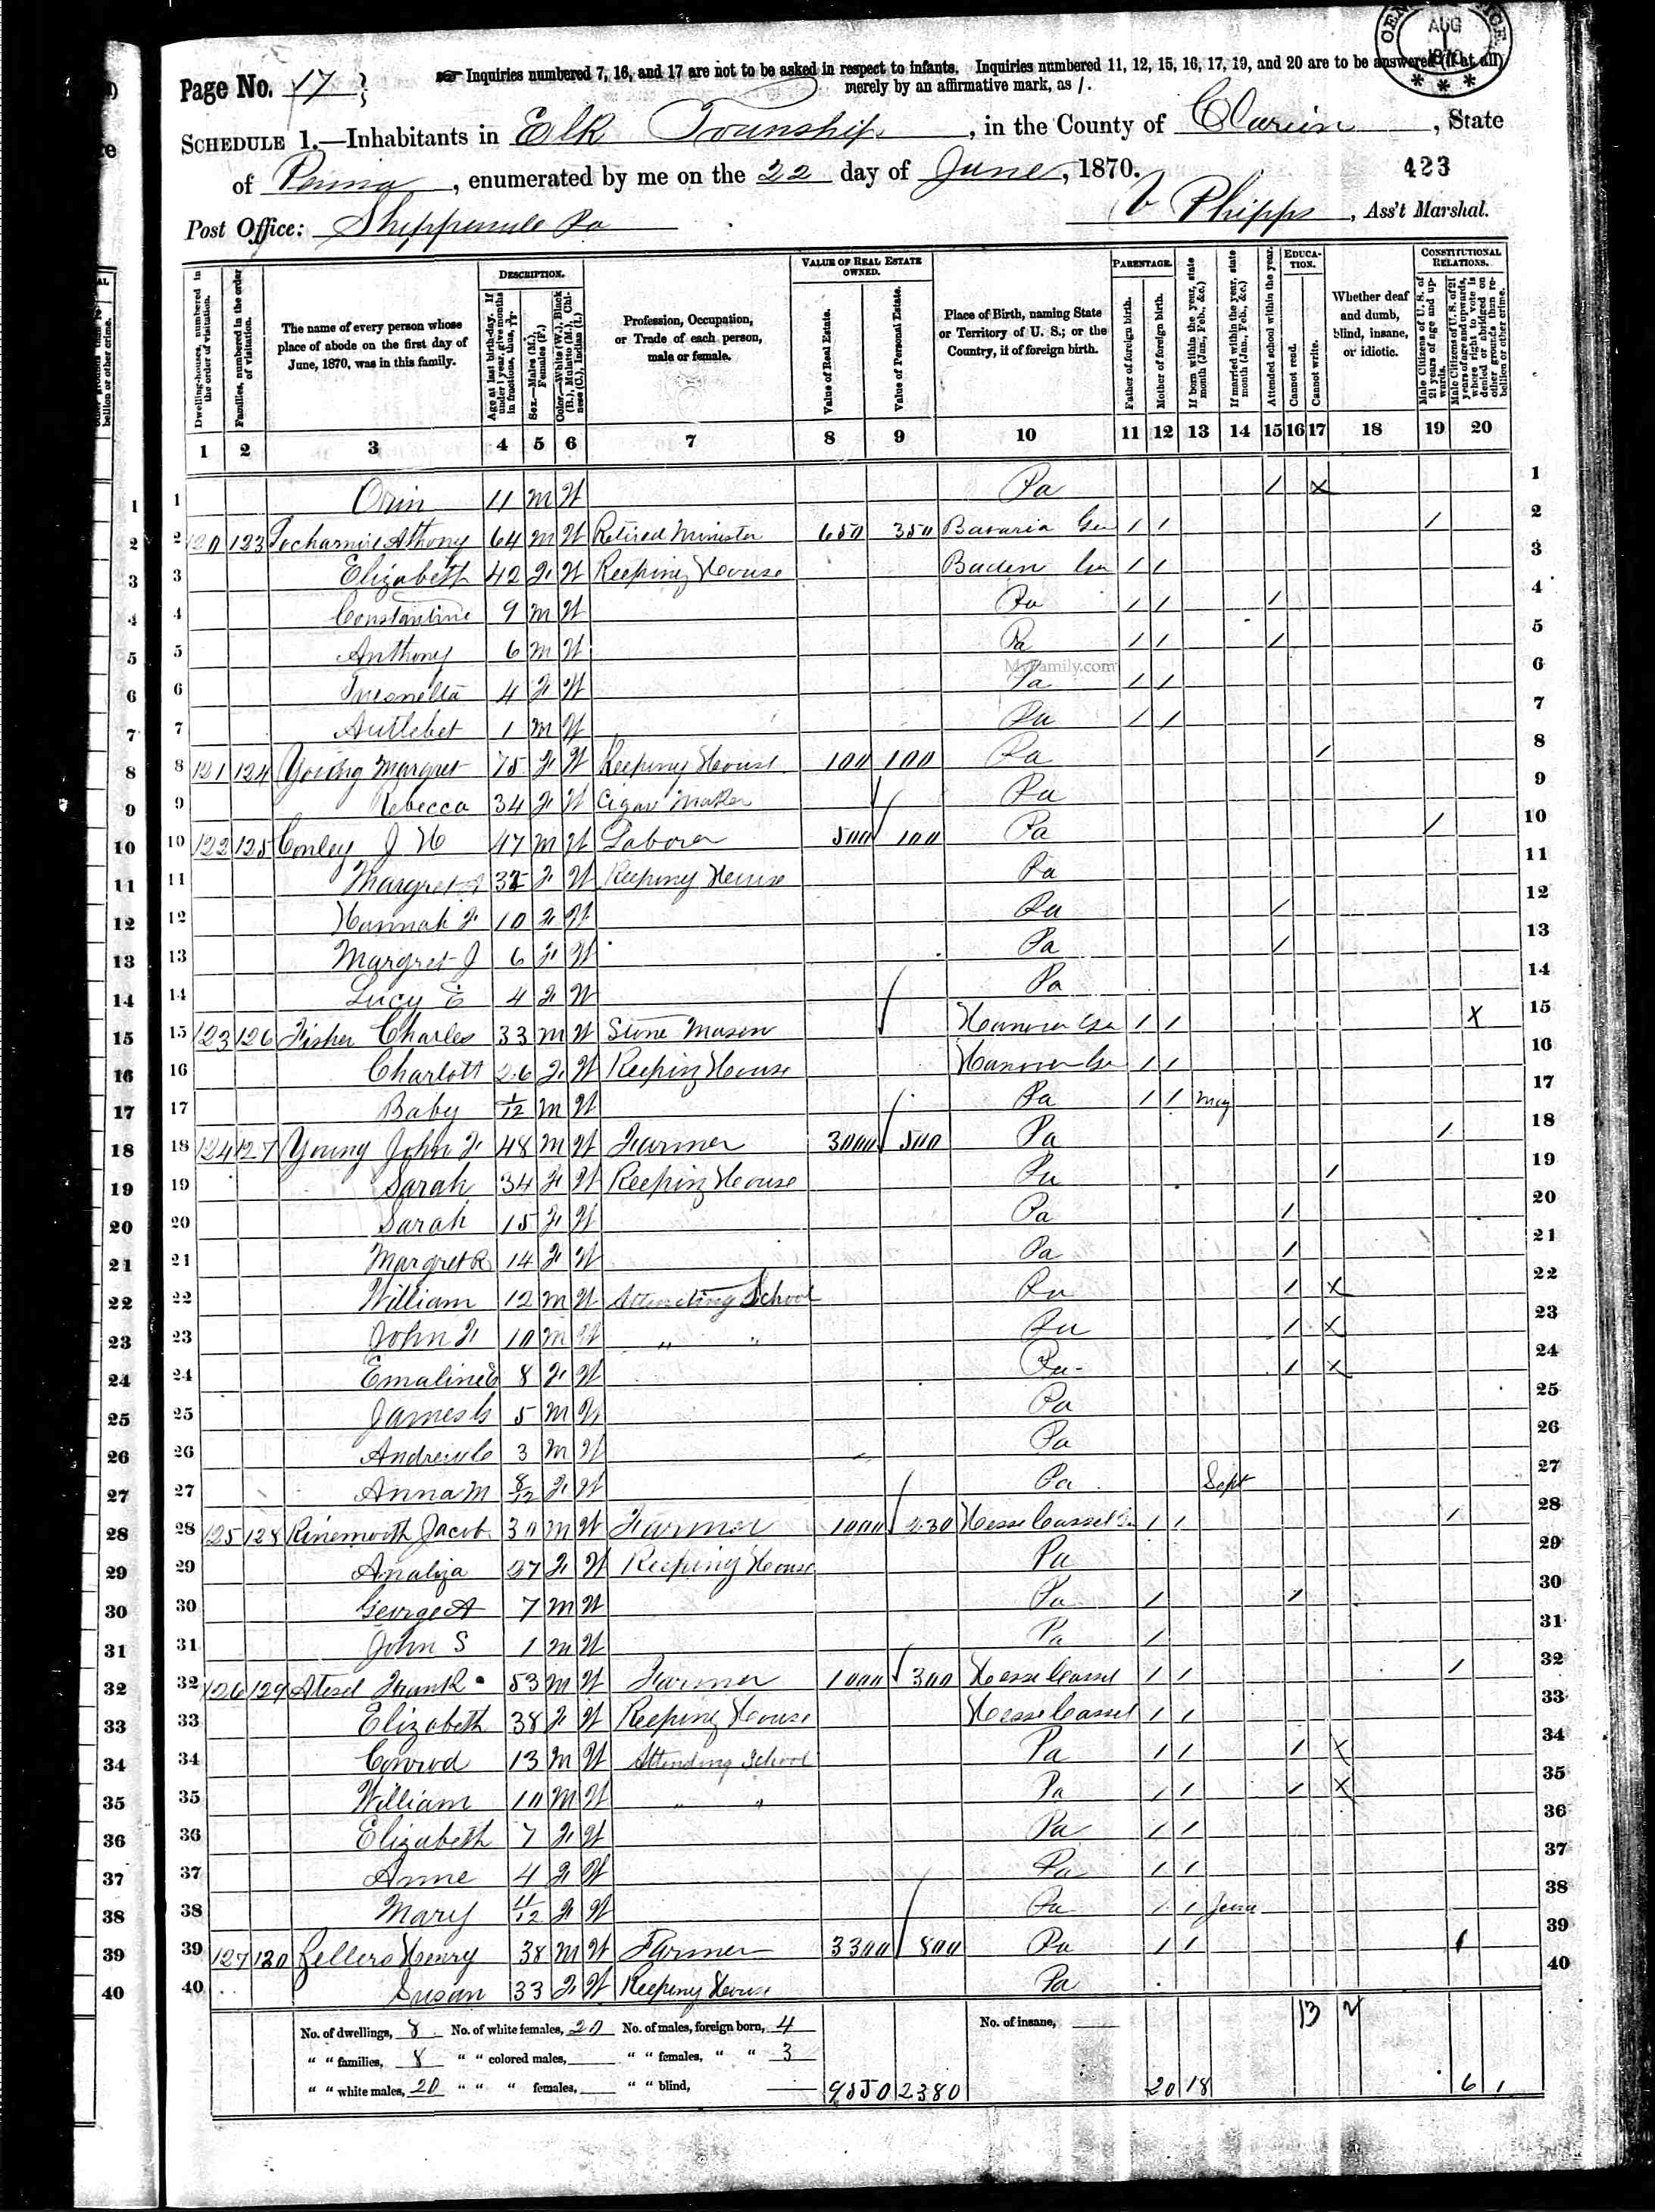 Page No. 17
Inquiries numbered 7, 16, and 17 are not to be asked in respect to infants. Inquiries numbered 11, 12, 15, 16, 17, 19, and 20 are to be answered (if at all)
merely by an affirmative mark, as /.
AUG 1 1870
SCHEDULE 1.—Inhabitants in Elk Township, in the County of Clarion, State
of Penna, enumerated by me on the 22 day of June, 1870.
423
Post Office: Shippenville Pa
Phipps, Ass't Marshal.
Dwelling-houses, numbered in the order of visitation.
Families, numbered in the order of visitation.
The name of every person whose place of abode on the first day of June, 1870, was in this family.
DESCRIPTION.
Age at last birth-day. If under 1 year, give months in fractions, thus, 3/12
Sex.—Males (M.), Females (F.)
Color.—White (W.), Black (B.), Mulatto (M.), Chinese (C.), Indian (I.)
Profession, Occupation, or Trade of each person, male or female.
VALUE OF REAL ESTATE OWNED.
Value of Real Estate.
Value of Personal Estate.
Place of Birth, naming State or Territory of U. S.; or the Country, if of foreign birth.
PARENTAGE.
Father of foreign birth.
Mother of foreign birth.
If born within the year, state month (Jan., Feb., &c.)
If married within the year, state month (Jan., Feb., &c.)
Attended school within the year.
EDUCATION.
Cannot read.
Cannot write.
Whether deaf and dumb, blind, insane, or idiotic.
CONSTITUTIONAL RELATIONS.
Male Citizens of U. S. of 21 years of age and upwards.
Male Citizens of U. S. of 21 years of age and upwards, where right to vote is denied or abridged on other grounds than rebellion or other crime.
1 2 3 4 5 6 7 8 9 10 11 12 13 14 15 16 17 18 19 20
1 Orin 11 M W Pa / x 1
2 120 123 Anthony 64 M W Retired Minister 650 350 Bavaria Ger / / / 2
3 Elizabeth 42 F W Keeping House Baden Ger / / 3
4 Constantine 9 M W Pa / / / 4
5 Anthony 6 M W Pa / / / 5
MyFamily.com
6 4 F W Pa / / 6
7 1 M W Pa / / 7
8 121 124 Young Margret 75 F W Keeping House 100 100 Pa / 8
9 Rebecca 34 F W Cigar Maker Pa 9
10 122 125 Conley J H 47 M W Laborer 500 100 Pa / 10
11 Margret 35 F W Keeping House Pa 11
12 Hannah F 10 F W Pa / 12
13 Margret J 6 F W Pa / 13
14 Lucy E 4 F W Pa 14
15 123 126 Fisher Charles 33 M W Stone Mason Hanover Ger / / x 15
16 Charlott 26 F W Keeping House Hanover Ger / / 16
17 Baby 1/12 M W Pa / / May 17
18 124 127 Young John F 48 M W Farmer 3000 500 Pa / 18
19 Sarah 34 F W Keeping House Pa / 19
20 Sarah 15 F W Pa / 20
21 Margret R 14 F W Pa / 21
22 William 12 M W Attending School Pa / x 22
23 John F 10 M W " " Pa / x 23
24 Emaline E 8 F W Pa / x 24
25 James G 5 M W Pa 25
26 Andrew C 3 M W Pa 26
27 Anna M 8/12 F W Pa Sept 27
28 125 128 Jacob 30 M W Farmer 1000 230 Hesse Cassel / / / 28
29 Analiza 27 F W Keeping House Pa 29
30 George A 7 M W Pa / / 30
31 John S 1 M W Pa / 31
32 126 129 Frank 53 M W Farmer 1000 300 Hesse Cassel / / / 32
33 Elizabeth 38 F W Keeping House Hesse Cassel / / 33
34 Conrod 13 M W Attending School Pa / / / x 34
35 William 10 M W " " Pa / / / x 35
36 Elizabeth 7 F W Pa / / 36
37 Anne 4 F W Pa / / 37
38 Mary 11/12 F W Pa / / June 38
39 127 130 Zellers Henry 38 M W Farmer 3300 800 Pa / / / 39
40 Susan 33 F W Keeping House Pa 40
No. of dwellings, 8 No. of white females, 20 No. of males, foreign born, 4 No. of insane,
" " families, 8 " " colored males, " " females, " " 3
" " white males, 20 " " " females, " " blind, 9550 2380 20 18 13 2 6 1